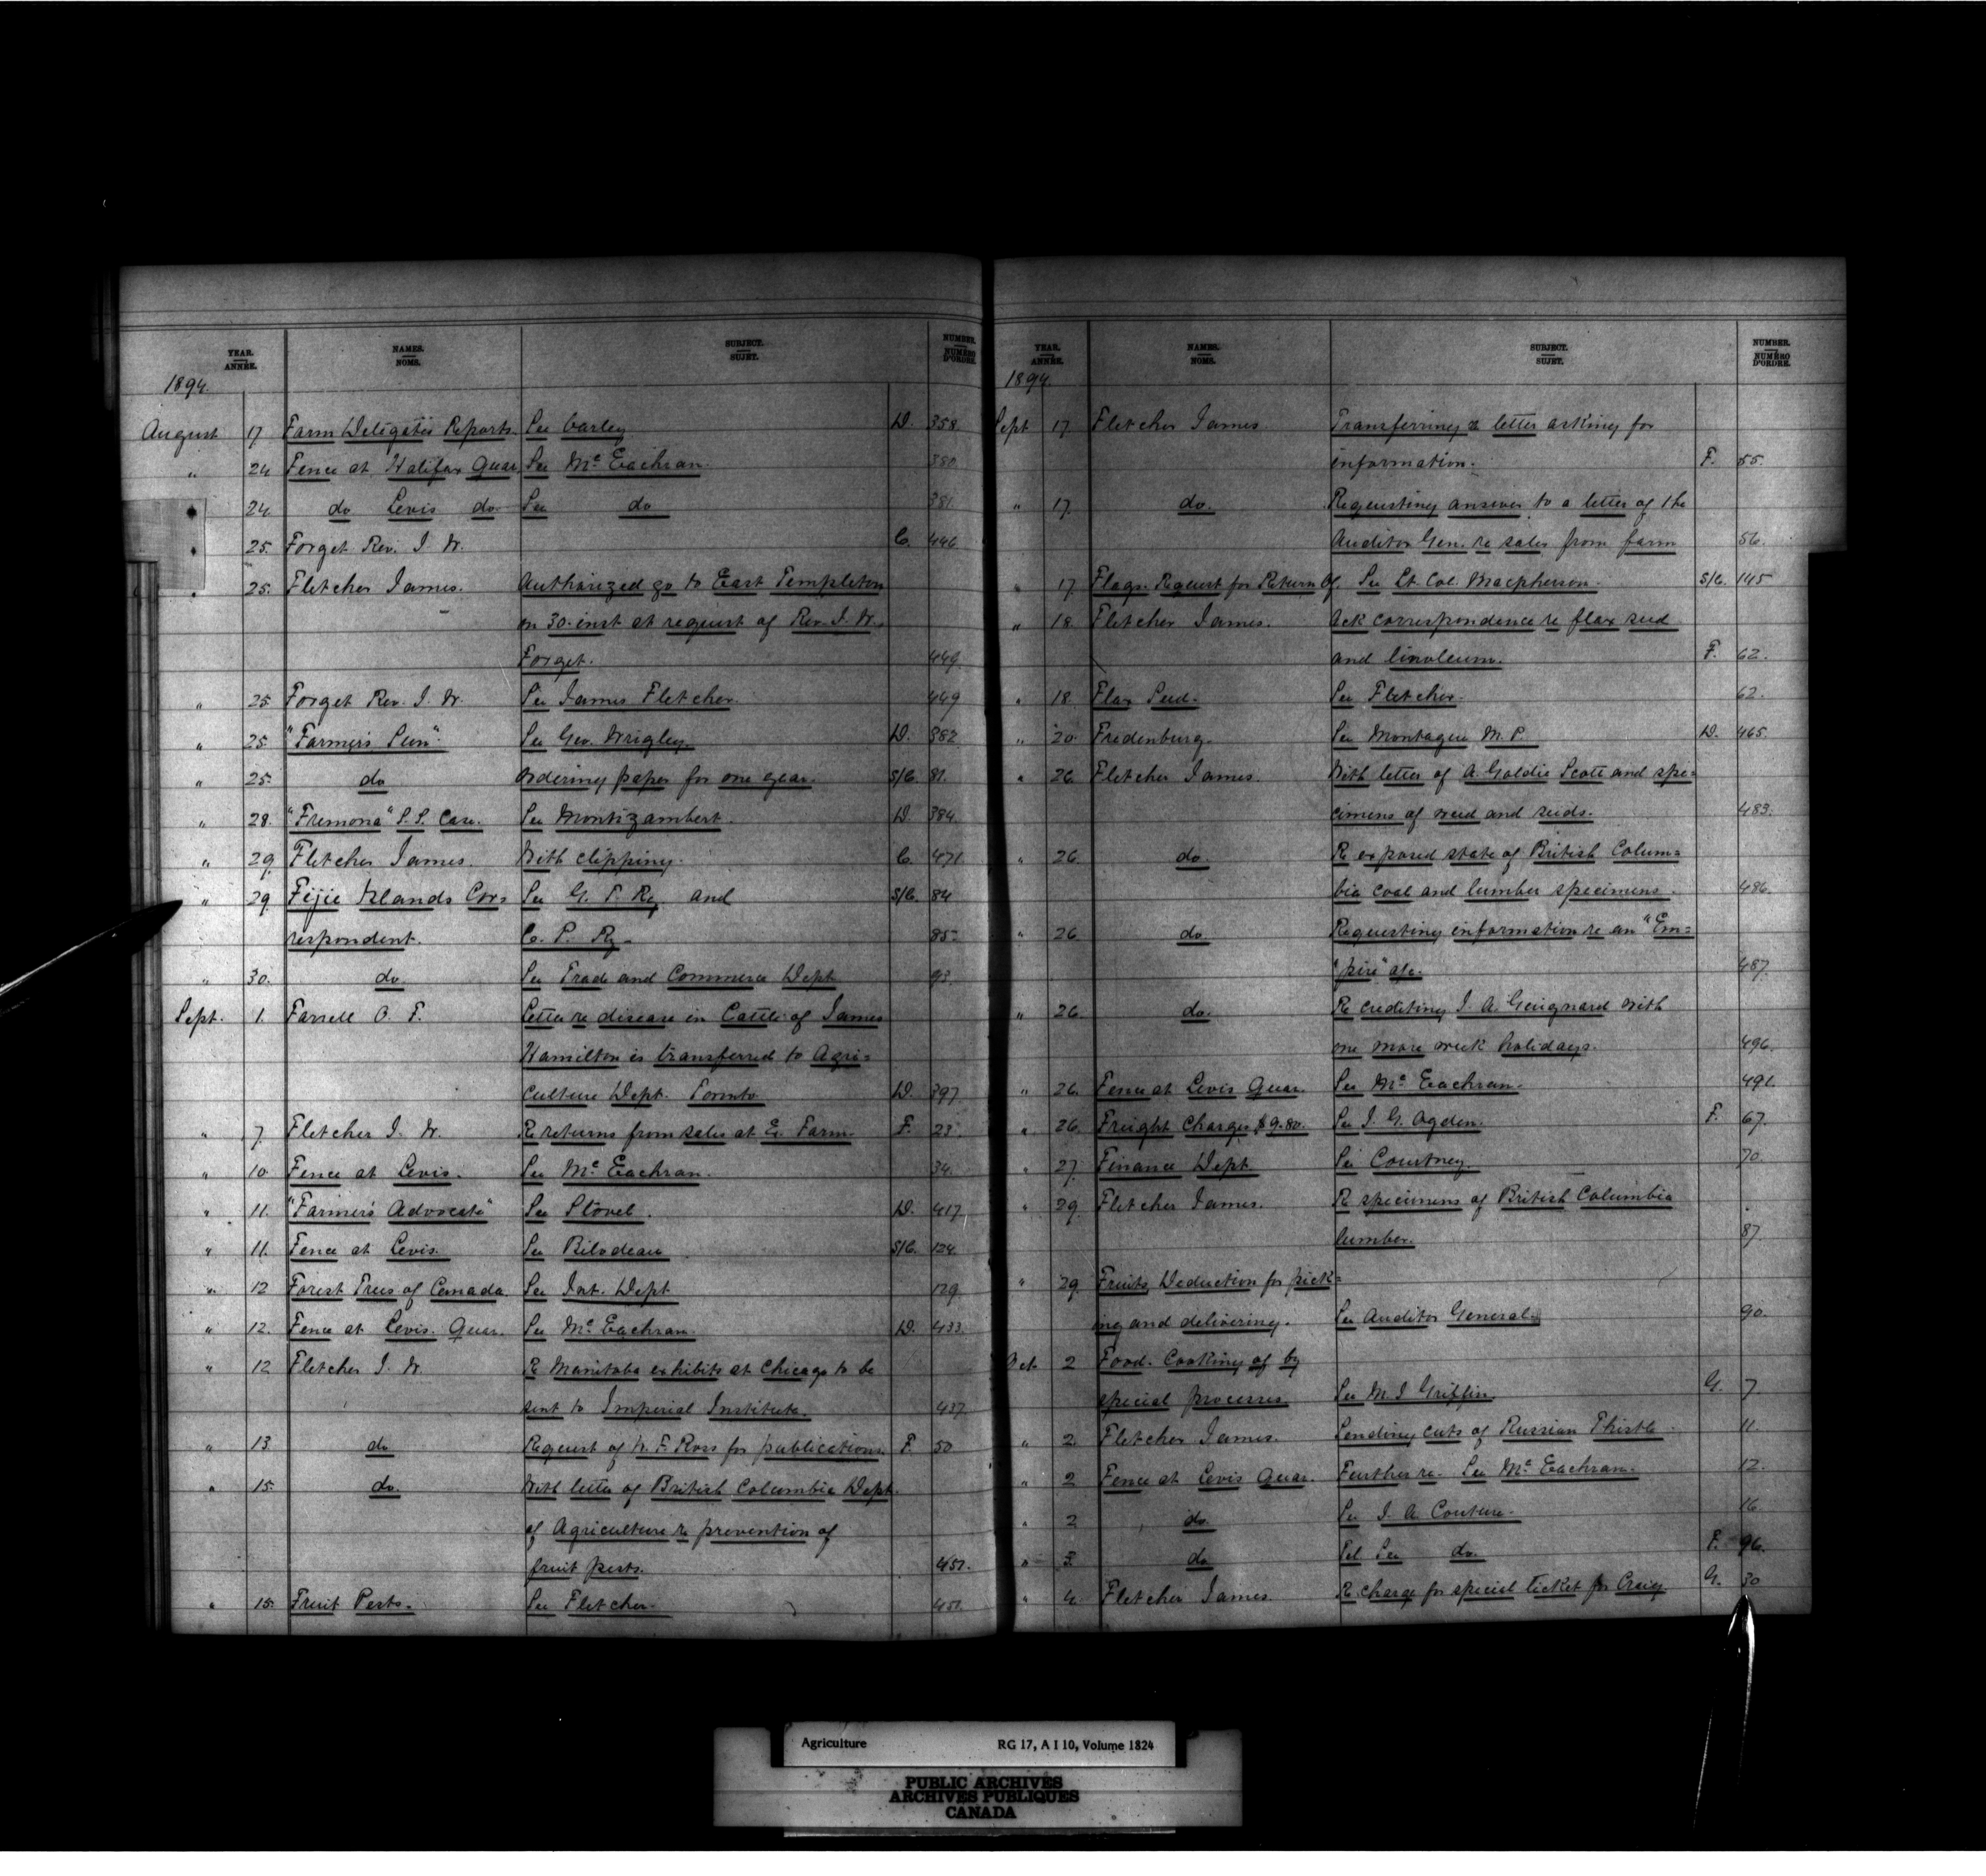 YEAR. ANNÉE. NAMES. NOMS. SUBJECT. SUJET. NUMBER. NUMÉRO D'ORDRE.
1894.
August 17 Farm Delegates Reports See Carley D. 358
" 24 Fence at Halifax Quar. See Mc Eachran. 380
24 do Levis do See do 381
25. Forget Rev. J. W. C. 446
25. Fletcher James. Authorized go to East Templeton
on 30. inst at request of Rev. J. W.
Forget. 449
" 25 Forget Rev. J. W. See James Fletcher. 449
" 25. "Farmers Sun" See Geo. Wrigley D. 382
" 25. do Ordering paper for one year. S/C. 81.
" 28. "Fremona" S.S. Case. See Montizambert. D. 384
" 29 Fletcher James. With clipping. C. 471
" 29 Fijie Islands Cor= See G. T. Ry and S/C. 84
respondent. C. P. Ry. 85
" 30. do See Trade and Commerce Dept 93
Sept. 1. Farrell O. F. Letter re disease in Cattle of James
Hamilton is transferred to Agri=
culture Dept. Toronto D. 397
" 7 Fletcher J. W. Re returns from sales at E. Farm. F. 23
" 10 Fence at Levis. See Mc Eachran. 34.
" 11. "Farmers Advocate" See Stovel. D. 417
" 11. Fence at Levis. See Bilodeau S/C. 124
" 12 Forest Trees of Canada. See Int. Dept 129
" 12. Fence at Levis. Quar. See Mc Eachran D. 433
" 12 Fletcher J. W. Re Manitoba exhibits at Chicago to be
sent to Imperial Institute. 437
" 13 do Request of W. F. Ross for publications. F. 50
" 15. do. With letter of British Columbia Dept.
of Agriculture re prevention of
fruit pests. 451.
" 15. Fruit Pests. See Fletcher. 451
YEAR. ANNÉE. NAMES. NOMS. SUBJECT. SUJET. NUMBER. NUMÉRO D'ORDRE.
1894.
Sept 17 Fletcher James. Transferring a letter asking for
information. F. 55.
" 17. do. Requesting answer to a letter of the
Auditor Gen. re sales from farm 56.
" 17 Flags. Request for Return of. See Lt. Col. Macpherson. S/C. 145
" 18. Fletcher James. Ack correspondence re flax seed
and linoleum. F. 62.
" 18. Flax Seed. See Fletcher. 62.
" 20. Fredenburg. See Montague M. P. D. 465.
" 26 Fletcher James. With letter of A. Goldie Scott and spe=
cimens of weed and seeds. 483.
" 26 do. Re exposed state of British Colum=
bia coal and lumber specimens. 486.
" 26 do Requesting information re an "Em=
"pire" axe. 487.
" 26. do. Re crediting J. A. Guignard with
one more week holidays. 496.
" 26. Fence at Levis Quar. See Mc Eachran. 491.
" 26. Freight Charges $9.80. See J. G. Ogden. F. 67.
" 27. Finance Dept. See Courtney. 70.
" 29 Fletcher James. Re specimens of British Columbia
lumber. 87
" 29 Fruits, Deduction for pick=
ing and delivering. See Auditor General. 90.
Oct. 2 Food. Cooking of by
special processes See M. J Griffin. G. 7
" 2 Fletcher James. Sending cuts of Russian Thistle. 11.
" 2 Fence at Levis Quar. Further re. See Mc Eachran. 12.
" 2 do See J. A Couture. 16
" 3. do Tel See do. F. 96.
" 4. Fletcher James. Re charge for special ticket for Craig. G. 30
Agriculture RG 17, A I 10, Volume 1824
PUBLIC ARCHIVES
ARCHIVES PUBLIQUES
CANADA